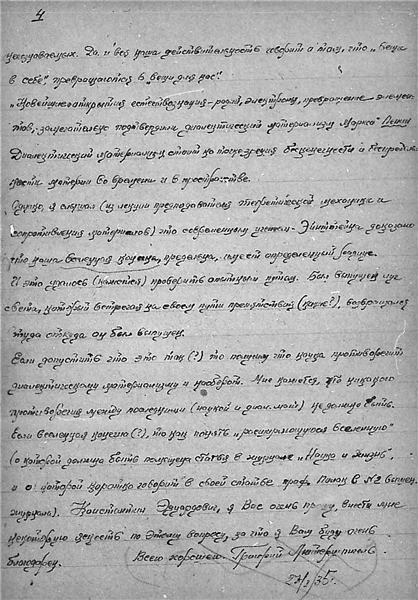 4
Да и вся наша действительность говорит о том, что "вещи
в себе" превращаются в "вещи для нас".
"Новейшие открытия естествознания - радий, электрон, превращение элемен-
тов, замечательно подтвердили диалектический материализм Маркса" Ленин
Диалектический материализм стоит на точке зрения бесконечности
материи во времени и в пространстве.
Однако, я слышал (из лекции преподавателя теоретической механики и
сопротивления материалов) что современным ученым - Эйнштейном доказано
что наша вселенная конечна, предельна, имеет определенные границы.
И это удалось (кажется) проверить опытным путем. Был выпущен луч
света, который встречая на своем пути препятствий (какие?), возвратился
туда откуда он был выпущен.
Если допустить что это так (?) то получим что наука противоречит
диалектическому материализму и наоборот. Мне кажется, что никакого
противоречия между последними (наукой и диал. мат.) не должно быть.
Если вселенная конечна (?), то как понять "расширяющуюся вселенную"
(о которой должна быть помещена статья в журнале "Наука и жизнь",
и о которой коротко говорит в своей статье проф. Полак в №2
журнала). Константин Эдуардович, я Вас очень прошу, внести мне
некоторую ясность по этому вопросу, за что я Вам буду очень
благодарен.
Всего хорошего. Григорий
35г.